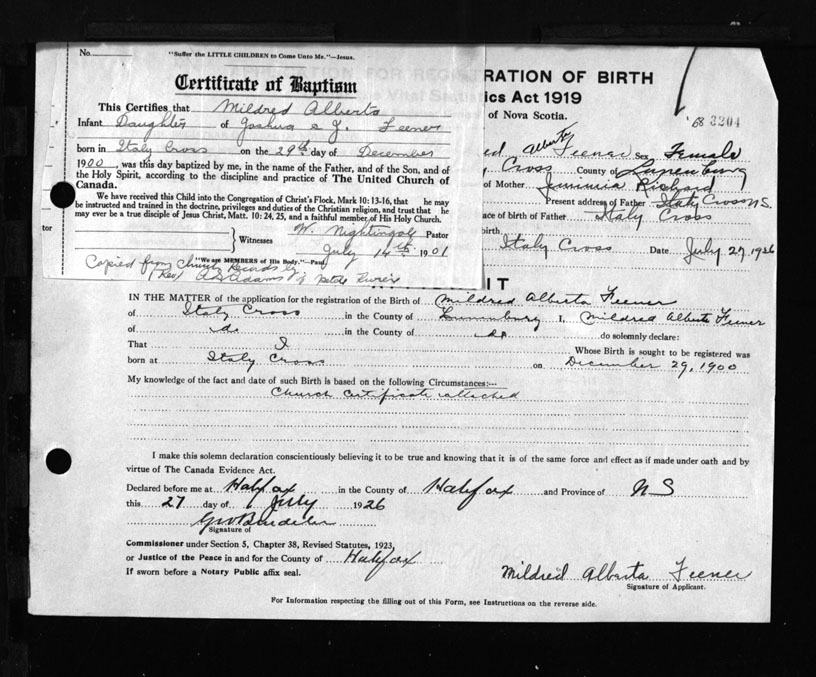 No.
"Suffer the LITTLE CHILDREN to Come Unto Me."—Jesus.
Certificate of Baptism
This Certifies that Mildred Alberta
Infant Daughter of Joshua & J. Feener
born in Italy Cross on the 29th day of December
1900, was this day baptized by me, in the name of the Father, and of the Son, and of
the Holy Spirit, according to the discipline and practice of The United Church of
Canada.
We have received this Child into the Congregation of Christ's Flock, Mark 10: 13-16, that he may
be instructed and trained in the doctrine, privileges and duties of the Christian religion, and trust that he
may ever be a true disciple of Jesus Christ, Matt. 10: 24, 25, and a faithful member of His Holy Church.
tor
W. Nightingale Pastor
Witnesses
July 14th 1901
"We are MEMBERS of His Body."—Paul
Copied from Church Records by
(Rev) A. Adams of Petite Riviere
RATION OF BIRTH
ics Act 1919
of Nova Scotia.
68 3204
ed Alberta Feener Sex Female
Cross County of Lunenburg
of Mother Jemimia Richard
Present address of Father Italy Cross N.S.
ace of birth of Father Italy Cross
birth.
Italy Cross Date July 27, 1926
IT
IN THE MATTER of the application for the registration of the Birth of Mildred Alberta Feener
of Italy Cross in the County of Lunenburg I, Mildred Alberta Feener
of do in the County of do do solemnly declare:
That I Whose Birth is sought to be registered was
born at Italy Cross on December 29, 1900
My knowledge of the fact and date of such Birth is based on the following Circumstances:—
Church Certificate attached
I make this solemn declaration conscientiously believing it to be true and knowing that it is of the same force and effect as if made under oath and by
virtue of The Canada Evidence Act.
Declared before me at Halifax in the County of Halifax and Province of N S
this 27 day of July 1926
Signature of
Commissioner under Section 5, Chapter 38, Revised Statutes, 1923,
or Justice of the Peace in and for the County of Halifax
If sworn before a Notary Public affix seal.
Mildred Alberta Feener
Signature of Applicant.
For Information respecting the filling out of this Form, see Instructions on the reverse side.